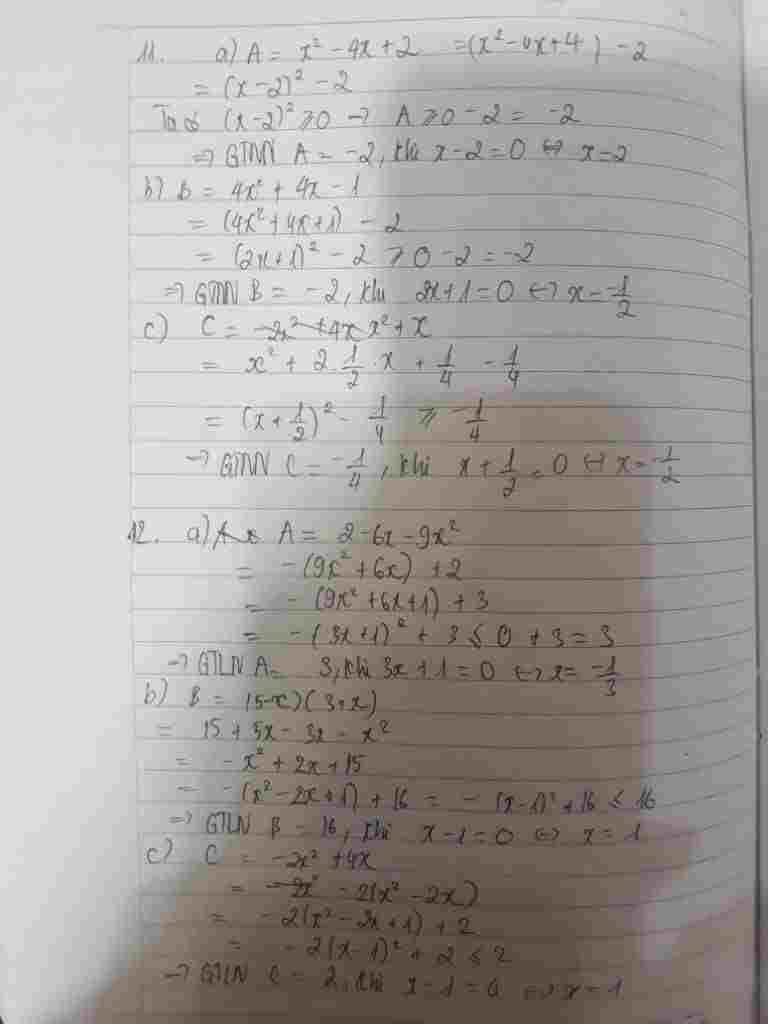 11. a) A = x² - 4x + 2 = (x² - 4x + 4) - 2
= (x - 2)² - 2
Ta có (x - 2)² ≥ 0 → A ≥ 0 - 2 = -2
⇒ GTNN A = -2, khi x - 2 = 0 ⇔ x = 2
b) B = 4x² + 4x - 1
= (4x² + 4x + 1) - 2
= (2x + 1)² - 2 ≥ 0 - 2 = -2
⇒ GTNN B = -2, khi 2x + 1 = 0 ↔ x = -1/2
c) C = -2x² + 4x x² + x
= x² + 2 . 1/2 . x + 1/4 - 1/4
= (x + 1/2)² - 1/4 ≥ -1/4
→ GTNN C = -1/4, khi x + 1/2 = 0 ↔ x = -1/2
12. a) A = 2 - 6x - 9x²
= -(9x² + 6x) + 2
= -(9x² + 6x + 1) + 3
= -(3x + 1)² + 3 ≤ 0 + 3 = 3
→ GTLN A = 3, khi 3x + 1 = 0 ↔ x = -1/3
b) B = (5 - x)(3 + x)
= 15 + 5x - 3x - x²
= -x² + 2x + 15
= -(x² - 2x + 1) + 16 = -(x - 1)² + 16 ≤ 16
⇒ GTLN B = 16, khi x - 1 = 0 ⇔ x = 1
c) C = -2x² + 4x
= -2x² - 2(x² - 2x)
= -2(x² - 2x + 1) + 2
= -2(x - 1)² + 2 ≤ 2
→ GTLN C = 2, khi x - 1 = 0 ↔ x = 1